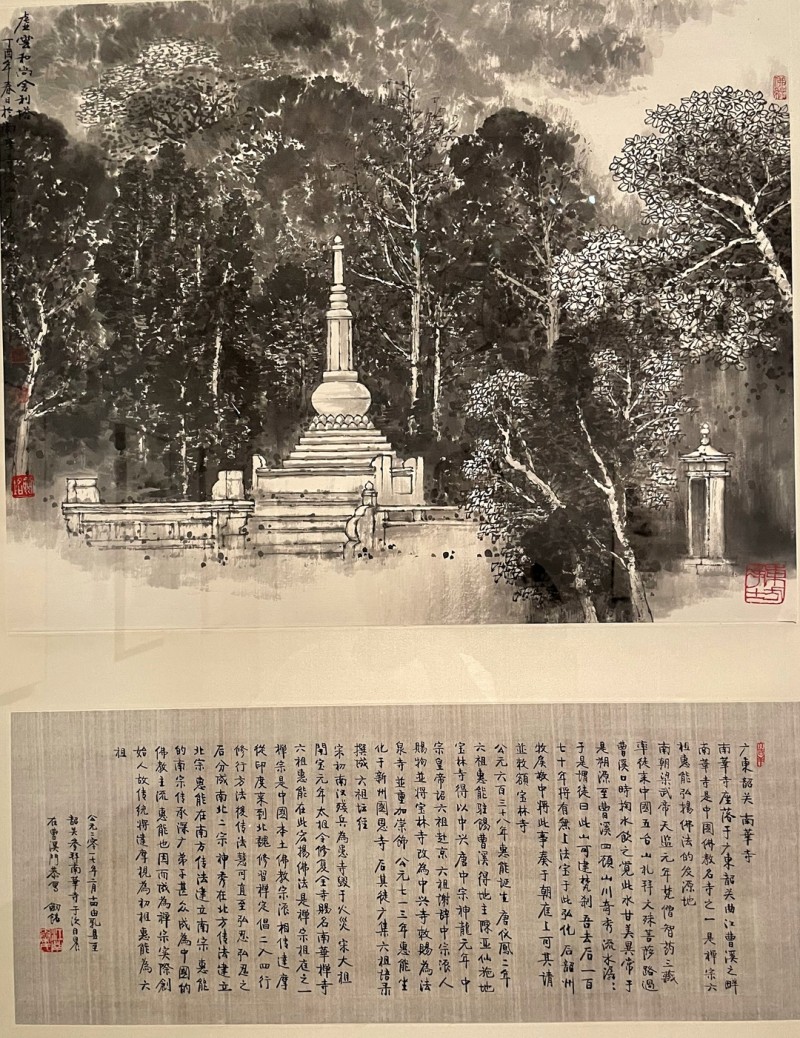 虚雲和尚舍利塔
丁酉年春日於南华
广東韶关 南華寺
南華寺座落于广東韶关曲江曹溪之畔
南華寺是中國佛教名寺之一 是禅宗六
祖惠能弘揚佛法的发源地
南朝梁武帝天监元年梵僧智药三藏
率徒来中國五台山礼拜文殊菩萨 路過
曹溪口時掬水飲之覚此水甘美異常于
是溯源至曹溪 四顧山川奇秀 流水潺
于是谓徒曰此山可建梵刹 吾去后一百
七十年将有無上法宝于此弘化 后韶州
牧侯敬中将此事奏于朝庭 上可其请
並敕额宝林寺
公元六百三十八年惠能誕生 唐仪鳳二年
六祖惠能驻锡曹溪 得地主陈亚仙施地
宝林寺得以中兴 唐中宗神龍元年 中
宗皇帝诏六祖赴京 六祖謝辞中宗派人
賜物並将宝林寺改為中兴寺 敕賜為法
泉寺並重加崇飾 公元七一三年惠能坐
化于新州國恩寺 后其徒广集六祖语录
撰成六祖坛经
宋初南汉残兵為患寺毁于火災 宋太祖
開宝元年太祖令修复全寺 賜名南華禅寺
六祖惠能在此宏揚佛法是禅宗祖庭之一
禅宗是中國本土佛教宗派 相传達摩
從印度来到北魏 修習禅定倡二入四行
修行方法 後传法慧可直至弘忍 弘忍之
后分成南北二宗 神秀在北方传法建立
北宗 惠能在南方传法建立南宗 惠能
的南宗传承深广弟子甚众 成為中國的
佛教主流 惠能也因而成為禅宗实際創
始人 故传统将達摩視為初祖惠能為六
祖
公元二零一七年二月十四由乳县至
韶关参拜南華寺 二次日晨
在曹溪門恭写